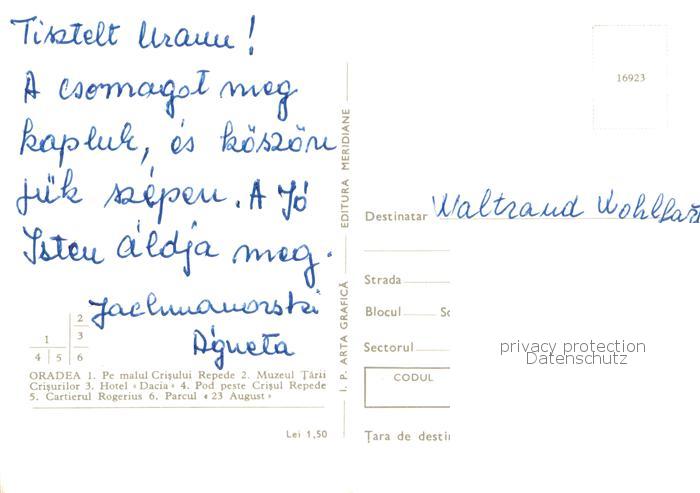 Tisztelt Uram!
A csomagot meg
kaptuk, és köszön
jük szépen. A Jó
Isten áldja meg.
Ágneta
1
2
3
4 5 6
ORADEA 1. Pe malul Crișului Repede 2. Muzeul Țării
Crișurilor 3. Hotel «Dacia» 4. Pod peste Crișul Repede
5. Cartierul Rogerius 6. Parcul «23 August»
Lei 1,50
I. P. ARTA GRAFICĂ EDITURA MERIDIANE
16923
Destinatar Waltraud
Strada
Blocul Sc
Sectorul
privacy protection
Datenschutz
CODUL
Țara de desti